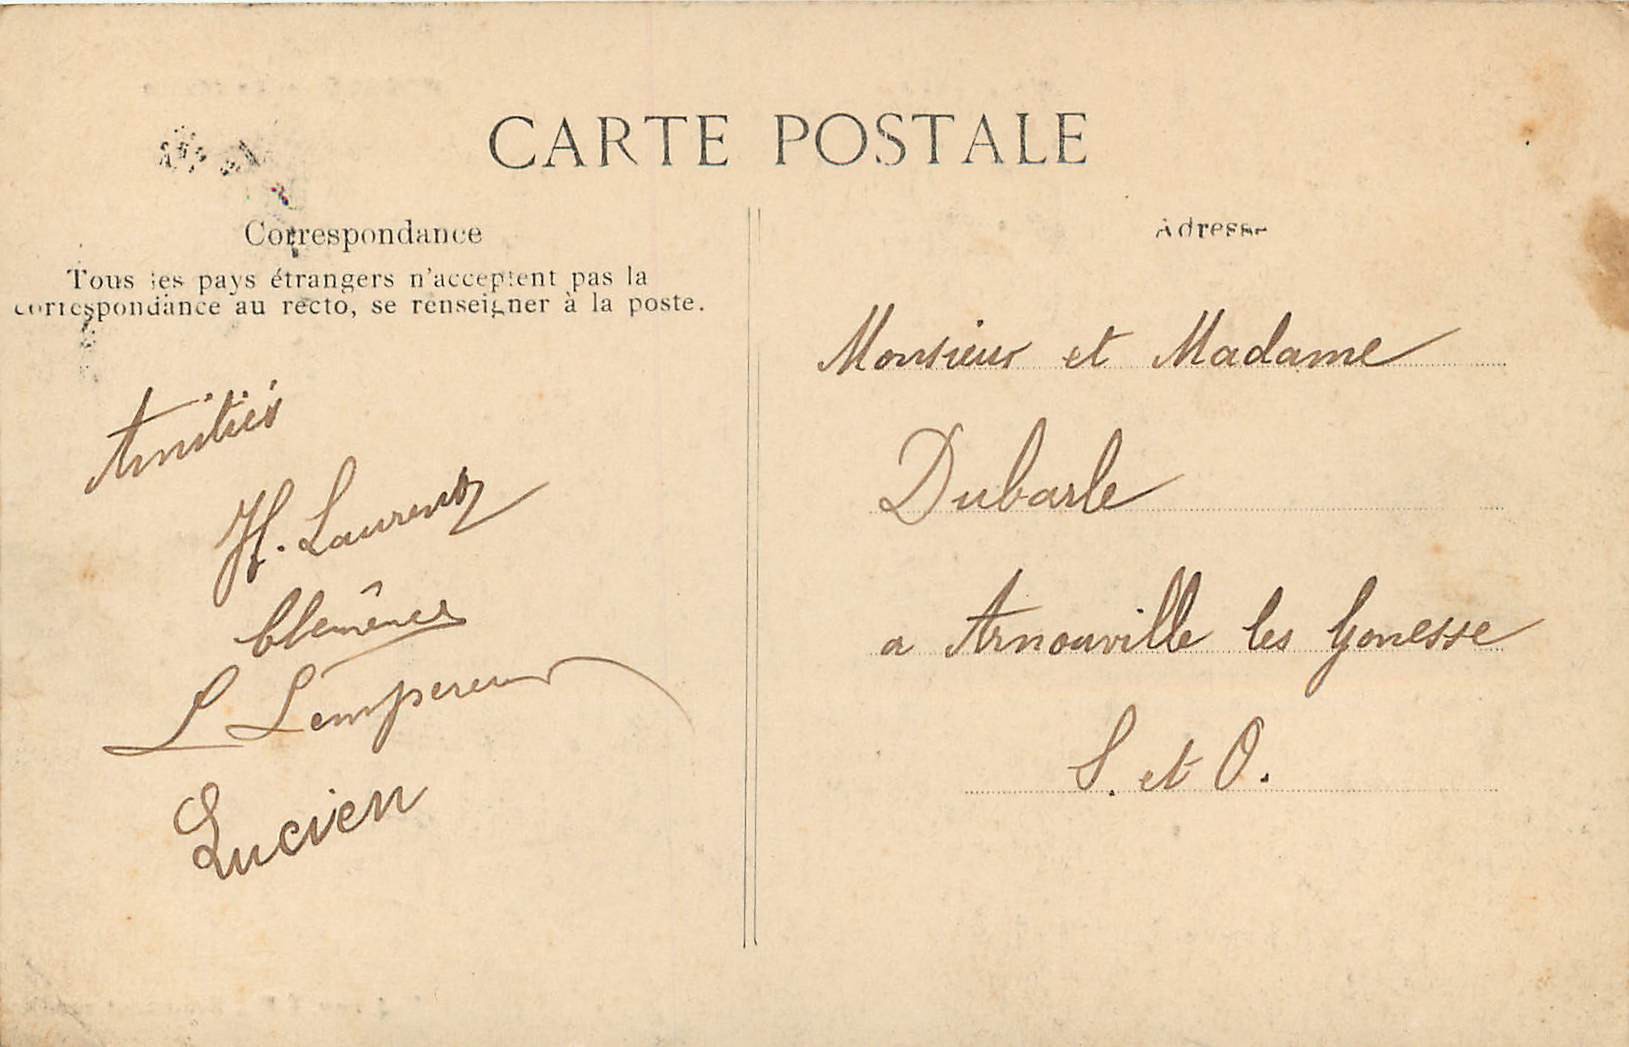 CARTE POSTALE
Correspondance
Tous les pays étrangers n'acceptent pas la
correspondance au recto, se renseigner à la poste.
Amitiés
H. Laurent
L Lempereur
Lucien
Adresse
Monsieur et Madame
Dubarle
a Arnouville les Gonesse
S. et O.